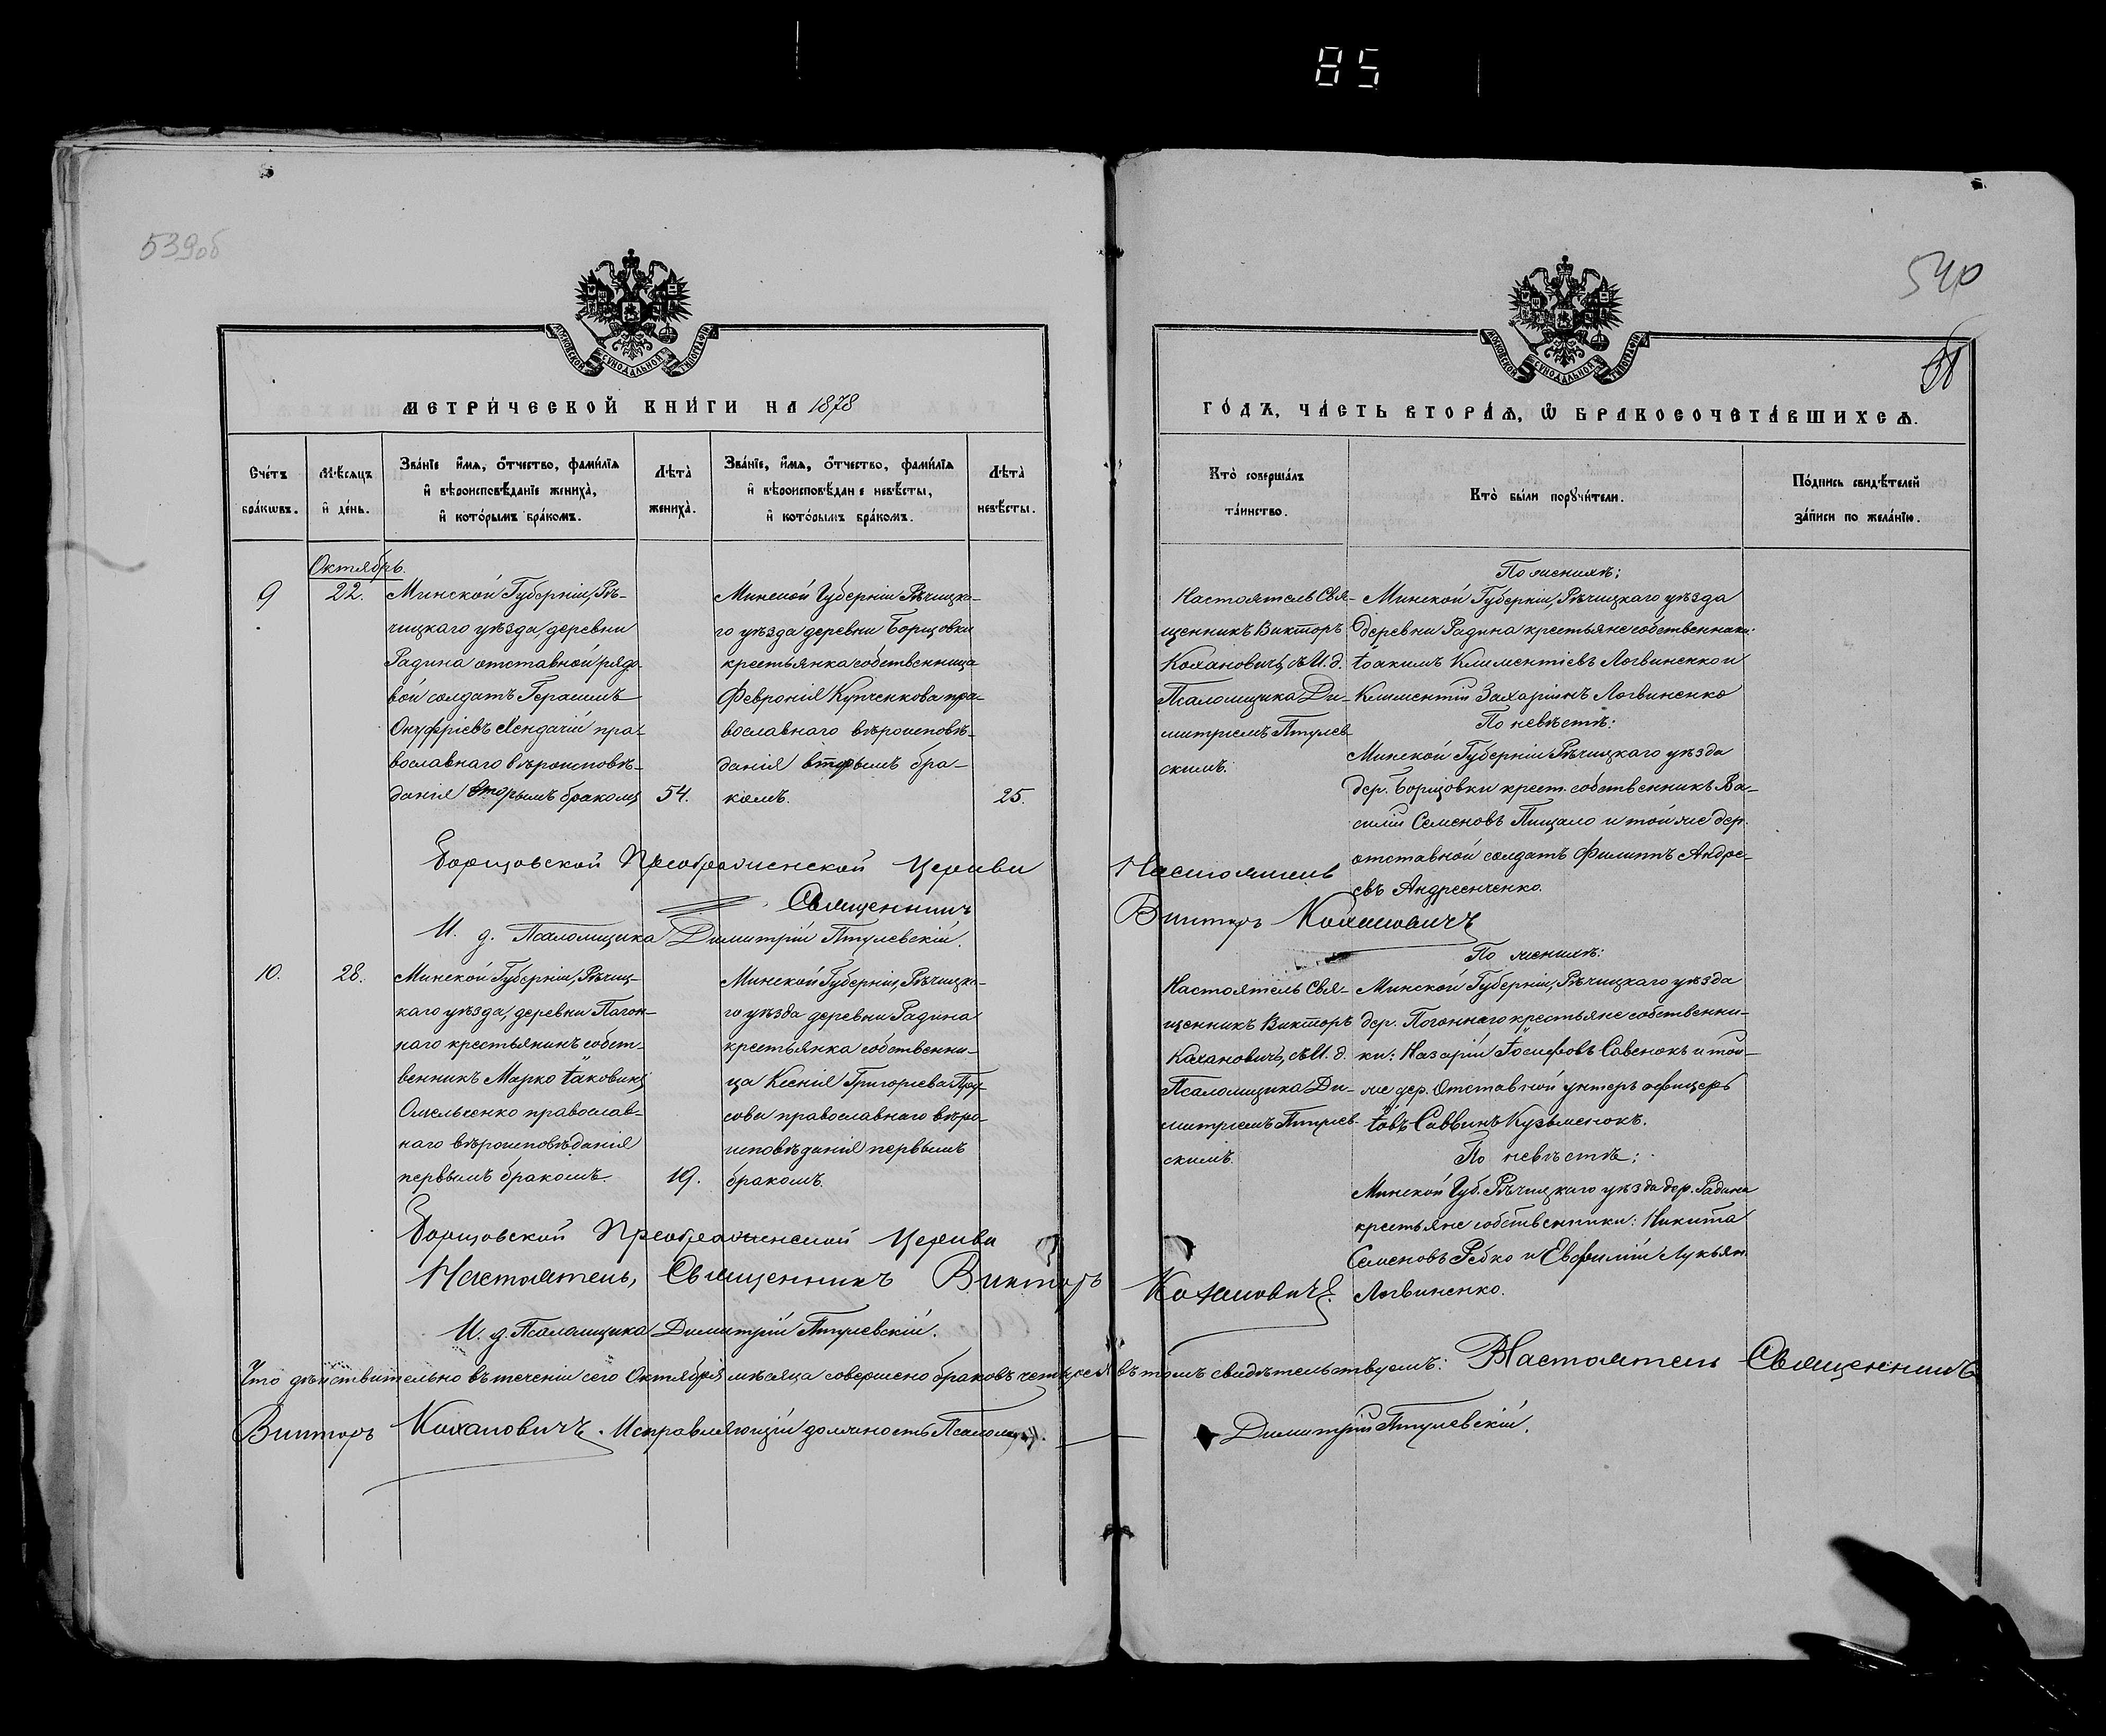 85
539об
540
МОСКОВСКОЙ СѴНОДАЛЬНОЙ ТИПОГРАФІИ
МОСКОВСКОЙ СѴНОДАЛЬНОЙ ТИПОГРАФІИ
МЕТРИ́ЧЕСКОЙ КНИ́ГИ НА 1878
ГО́ДЪ, ЧА́СТЬ ВТОРА́Ѧ, Ѽ БРАКОСОЧЕТА́ВШИХСѦ.
Сче́тъ бра́кѡвъ.
Мѣ́сяцъ и҆ де́нь.
Зва́нїе и҆́мѧ, ѻ҆́тчество, фамѝлїѧ
и҆ вѣроисповѣ́данїе жениха̀,
и҆ кото́рымъ бра́комъ.
Лѣ́та̀ жениха̀.
Зва́нїе, и҆́мѧ, ѻ҆́тчество, фамѝлїѧ
и҆ вѣроисповѣ́дан е невѣ́сты,
и҆ кото́рымъ бра́комъ.
Лѣ́та̀ невѣ́сты.
Кто̀ соверша́лъ
та́инство.
Кто̀ бы́ли порꙋчи́тели.
По́дпись свидѣ́телей
за́писи по жела́нїю.
Октябрь.
9
22.
Минской Губерніи, Рѣ-
чицкаго уѣзда, деревни
Радина отставной рядо-
вой солдатъ Герасимъ
Онуфріевъ пра-
вославнаго вѣроисповѣ-
данія вторымъ бракомъ
54.
Минской Губерніи Рѣчицка-
го уѣзда деревни Борщовки
крестьянка собственница
Февронія Купченкова пра-
вославнаго вѣроисповѣ-
данія вторымъ бра-
комъ.
25.
Настоятель Свя-
щенникъ Викторъ
Кохановичъ, съ И. д.
Псаломщика Ди-
митріемъ Птулев-
скимъ.
По женихѣ:
Минской Губерніи, Рѣчицкаго уѣзда
деревни Радина крестьяне собственники:
Іоакимъ Климентіевъ Логвиненко и
Климентій Захаріинъ Логвиненко
По невѣстѣ:
Минской Губерніи Рѣчицкаго уѣзда
дер. Борщовки крест. собственникъ Ва-
силій Семеновъ Пищало и той же дер.
отставной солдатъ Филиппъ Андре-
евъ Андреенченко.
Борщовской Преображенской Церкви Настоятель
Священникъ Викторъ Кохановичъ
И. д. Псаломщика Димитрій Птулевскій.
10.
28.
Минской Губерніи, Рѣчиц-
каго уѣзда, деревни Погон-
наго крестьянинъ собст-
венникъ Марко Іаковинъ
Омельченко православ-
наго вѣроисповѣданія
первымъ бракомъ.
19.
Минской Губерніи, Рѣчицка-
го уѣзда деревни Радина
крестьянка собственни-
ца Ксенія Григориева
православнаго вѣро-
исповѣданія первымъ
бракомъ.
Настоятель Свя-
щенникъ Викторъ
Кохановичъ, съ И. д.
Псаломщика Ди-
митріемъ Птулев-
скимъ.
По женихѣ:
Минской Губерніи, Рѣчицкаго уѣзда
дер. Погоннаго крестьяне собственни-
ки: Назарій Іосифовъ Савенокъ и той-
же дер. Отставной унтеръ офицеръ
Іовъ Саввинъ Кузьменокъ.
По невѣстѣ:
Минской Губ. Рѣчицкаго уѣзда дер. Радина
крестьяне собственники: Никита
Семеновъ Ребко и Евфимій Лукьян.
Логвиненко.
Борщовской Преображенской Церкви
Настоятель, Священникъ Викторъ Кохановичъ.
И. д. Псаломщика Димитрій Птулевскій.
Что дѣйствительно въ теченіи сего Октября мѣсяца совершено браковъ четыре въ томъ свидѣтельствуемъ: Настоятель Священникъ
Викторъ Кохановичъ. Исправляющій должность Псаломщ. Димитрій Птулевскій.